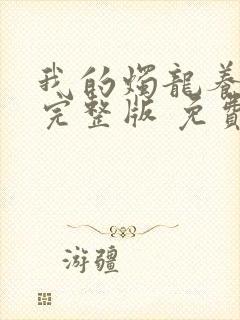 我的燭龍養
完整版 免費
游疆